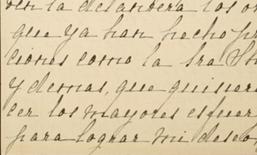 en la delantera los o
que ya han hecho pr
ciones como la Sra
y demas, que quisiera
cer los mayores esfuer
para lograr mi deseo,